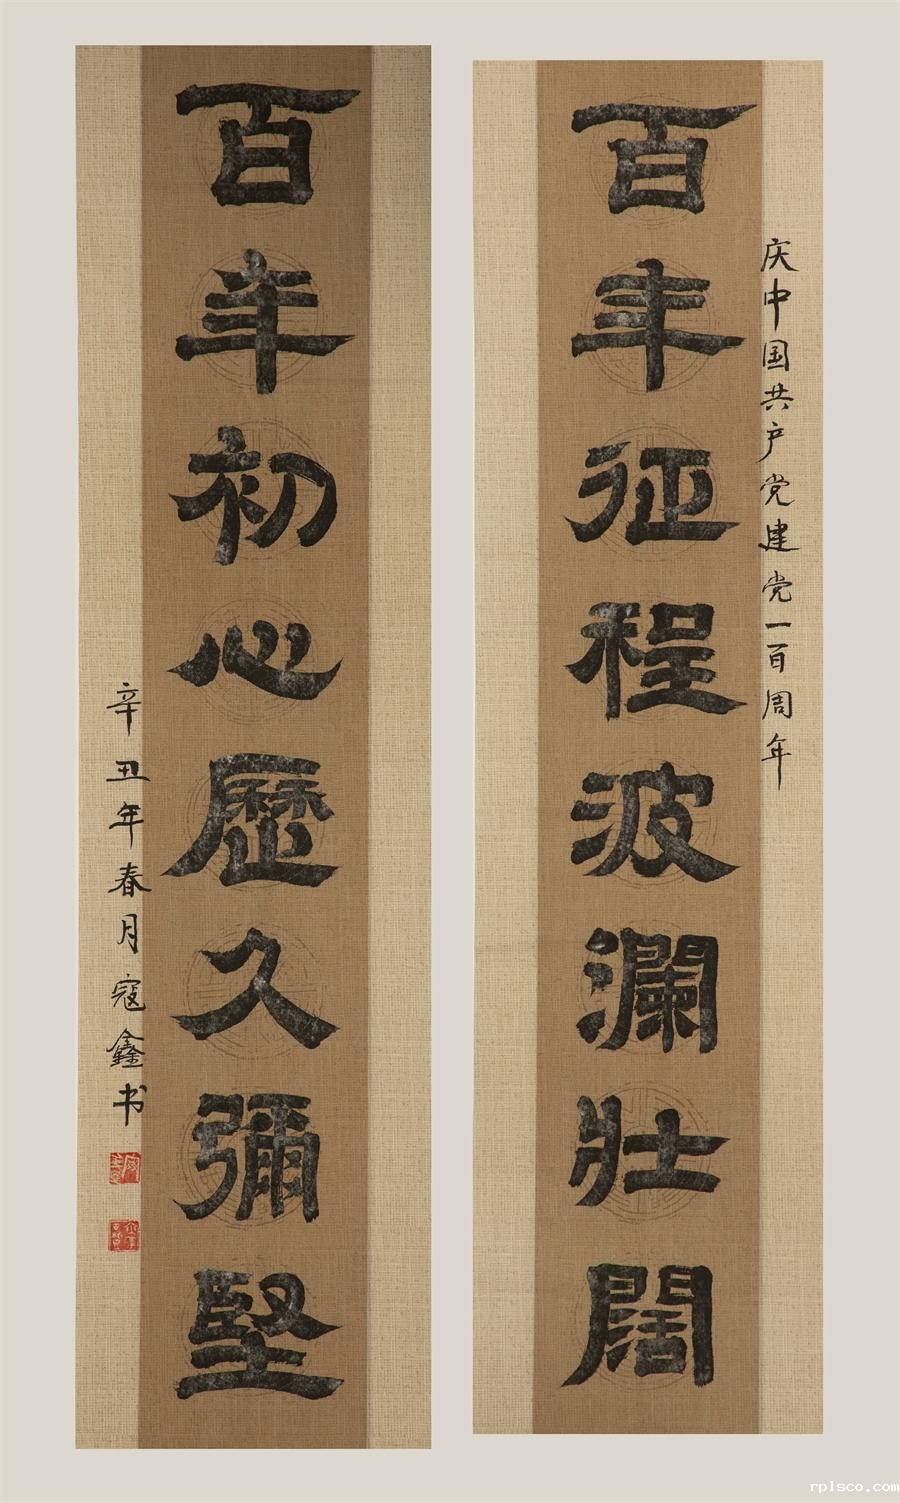 庆中国共产党建党一百周年
百年征程波澜壮闊
百年初心歷久彌堅
辛丑年春月寇鑫书
rplsco.com